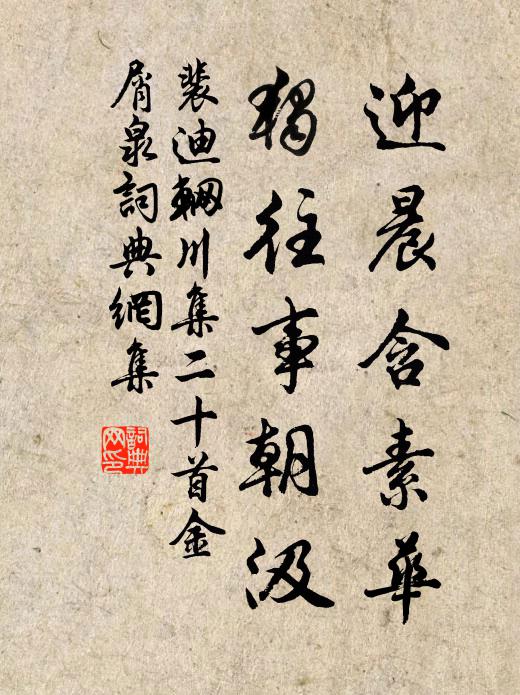 迎晨含素華
獨往事朝汲
裴迪輞川集二十首金
屑泉詞典網集
詞典
網印